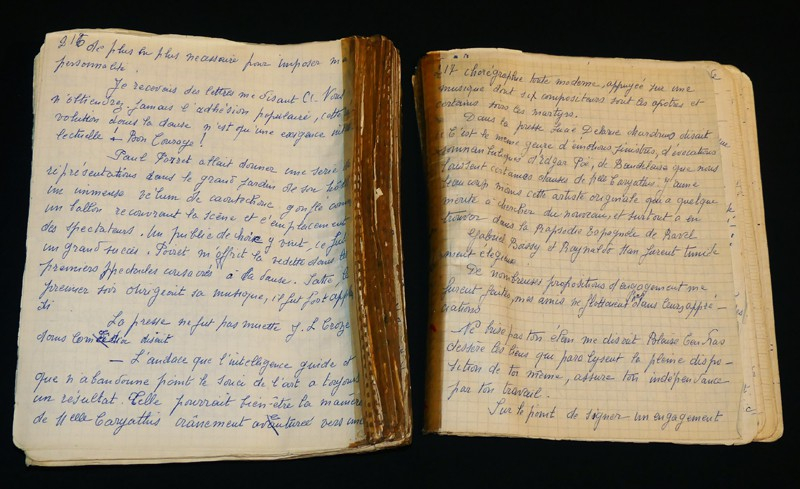 216 de plus en plus necessaire pour imposer ma
personnalité.
Je recevais des lettres me disant Ct. Vous
n'obtiendrez jamais l'adhésion populaire, cette
volution dans la danse n'est qu'une exigence
lectuelle! Bon Courage!
Paul Poiret allait donner une série
réprésentations dans le grand jardin de son
une immense velum de caoutchouc gonflé comme
un ballon recouvrant la scène et l'emplacement
des spectateurs. Un public de choix y vint, ce fut
un grand succès. Poiret m'offrit la vedette dans
premiers spectacles consacrés à la danse. Satie
premier soir dirigeait sa musique, il fut fort
di
La presse ne fut pas muette J. L Croze
dans Comœdia disait
— L'audace que l'intelligence guide et
que n'abandonne point le souci de l'art a toujours
un resultat. Telle pourrait bien être la manière
de Melle Caryathis crânement aventurée vers une
217 chorégraphie toute moderne, appuyée sur une
musique dont six compositeurs sont les apôtres et
certains soirs les martyrs.
Dans la presse Lucie Delarue Mardrus disait
C'est le même genre d'emotions sinistres, d'évocations
d'Edgar Poë, de Baudelaire que nous
laissent certaines danses de Melle Caryathis. J'aime
beaucoup mais cette artiste originale qui a quelque
mérite à chercher du nouveau, et surtout à en
trouver dans la Rapsodie Espagnole de Ravel
Gabriel Boissy et Raynaldo Han furent
De nombreuses propositions d'engagement me
furent faites, mes amis se flattaient dans leurs appré-
ciations
Ne brise pas ton élan me disait Blaise Cendras
desserre les liens qui paralysent la pleine dispo-
sition de toi même, assure ton indépendance
par ton travail.
Sur le point de signer un engagement